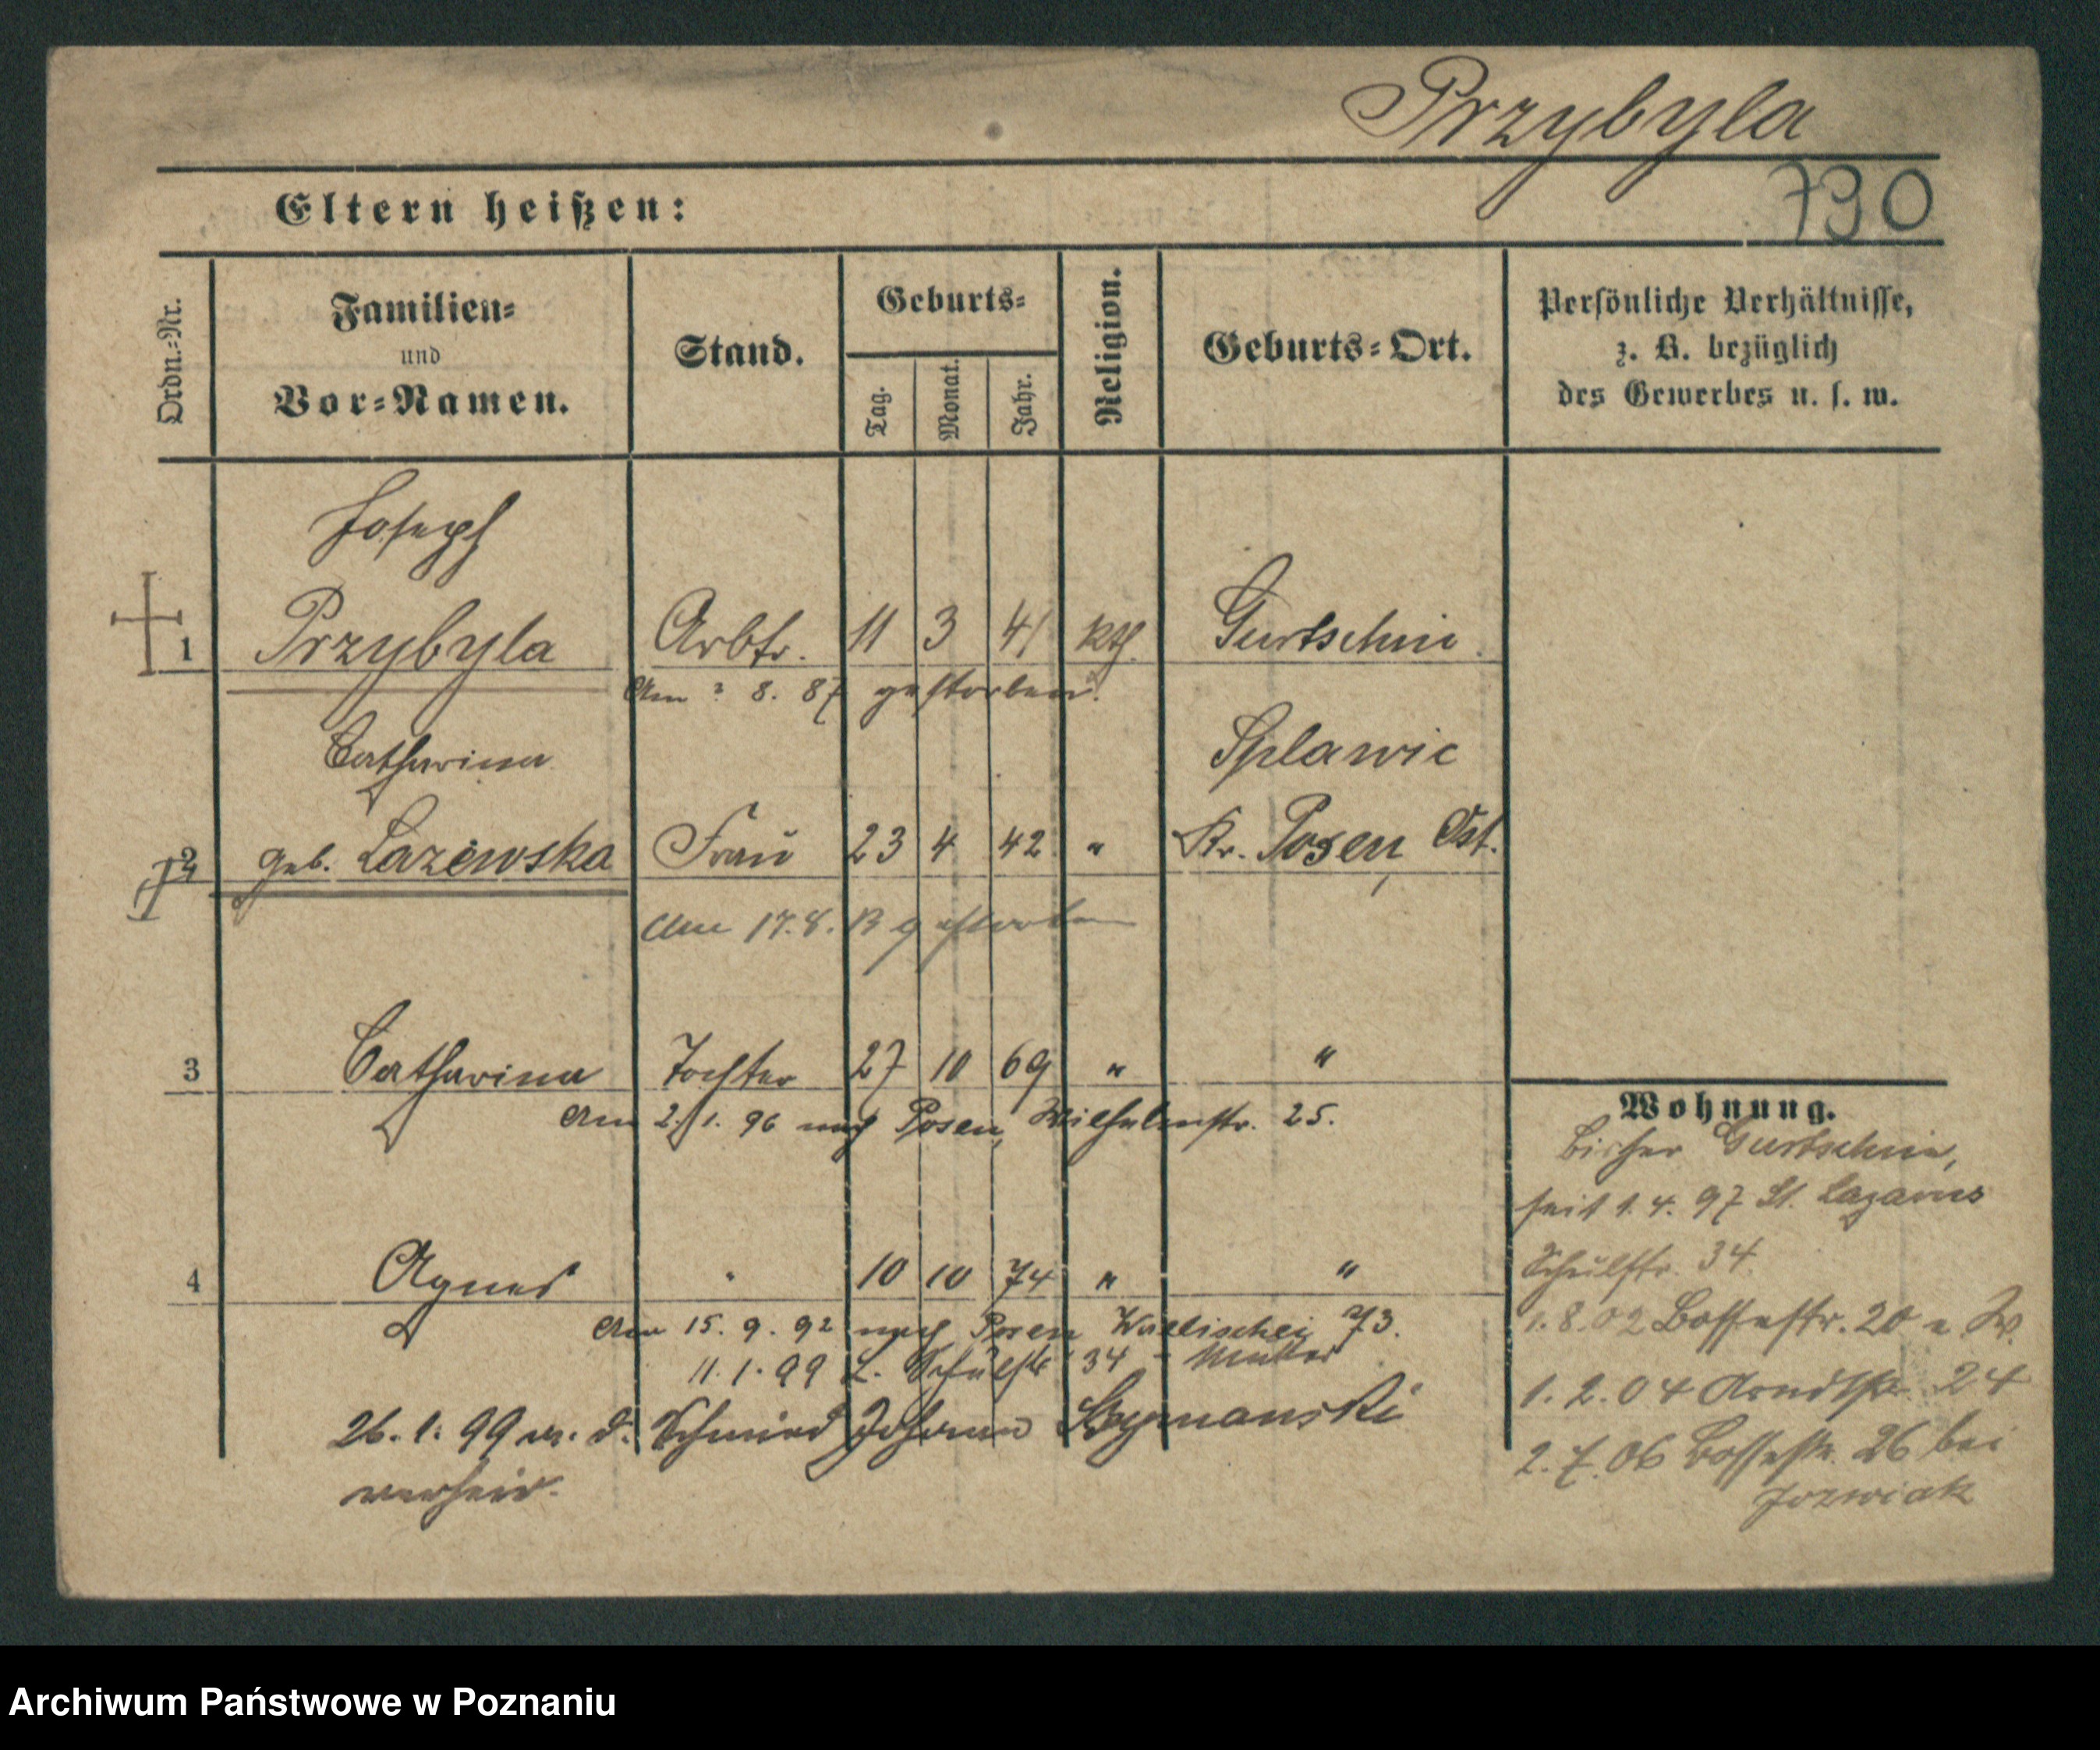 Przybyla
730
Eltern heißen:
Ordn.-Nr.
Familien-
und
Vor-Namen.
Stand.
Geburts-
Tag.
Monat.
Jahr.
Religion.
Geburts-Ort.
Persönliche Verhältnisse,
z. B. bezüglich
des Gewerbes u. s. w.
Joseph
1 Przybyla Arbtr. 11 3 41 kth. Gurtschin.
Am ? 8. 87 gestorben.
Catharina Splawie
2 geb. Lazewska Frau 23 4 42 " Kr. Posen Ost.
Am 17. 8. 13 gestorben
3 Catharina Tochter 27 10 69 " "
Am 2. 1. 96 nach Posen, Wilhelmstr. 25.
4 Agnes " 10 10 74 " "
Am 15. 9. 92 nach Posen Wallischei 73.
11. 1. 99 L. Schulstr 34 - Mutter
26. 1. 99 m. d. Schmied Johann Szymanski
verheir.
Wohnung.
bisher Gurtschin,
seit 1. 4. 97 St. Lazarus
Schulstr. 34
1. 8. 02 Bossestr. 20
1. 2. 04 Arndtstr. 24
2. 7. 06 Bossestr. 26 bei
Jozwiak
Archiwum Państwowe w Poznaniu